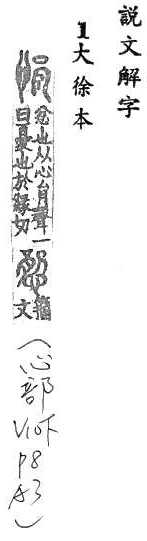 説文解字
1大徐本
悁
忿也从心肙聲一
曰憂也於緣切
籀
文
(心部
V10下
P8
A3)